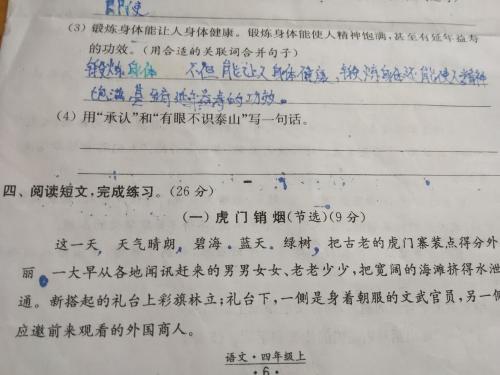 即使
(3)锻炼身体能让人身体健康。锻炼身体能使人精神饱满,甚至有延年益寿
的功效。(用合适的关联词合并句子)
锻炼身体 不但能让人身体健康,锻炼身体还能使人精神
饱满甚至有延年益寿的功效。
(4)用“承认”和“有眼不识泰山”写一句话。
四、阅读短文,完成练习。(26分)
(一)虎门销烟(节选)(9分)
这一天,天气晴朗,碧海。蓝天。绿树,把古老的虎门寨装点得分外
丽。一大早从各地闻讯赶来的男男女女、老老少少,把宽阔的海滩挤得水泄
通。新搭起的礼台上彩旗林立;礼台下,一侧是身着朝服的文武官员,另一侧
应邀前来观看的外国商人。
语文·四年级上
·6·